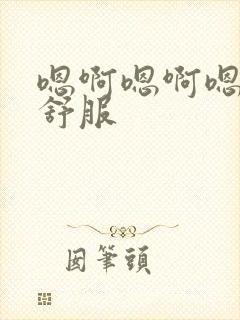 嗯啊嗯啊嗯
舒服
囡筆頭